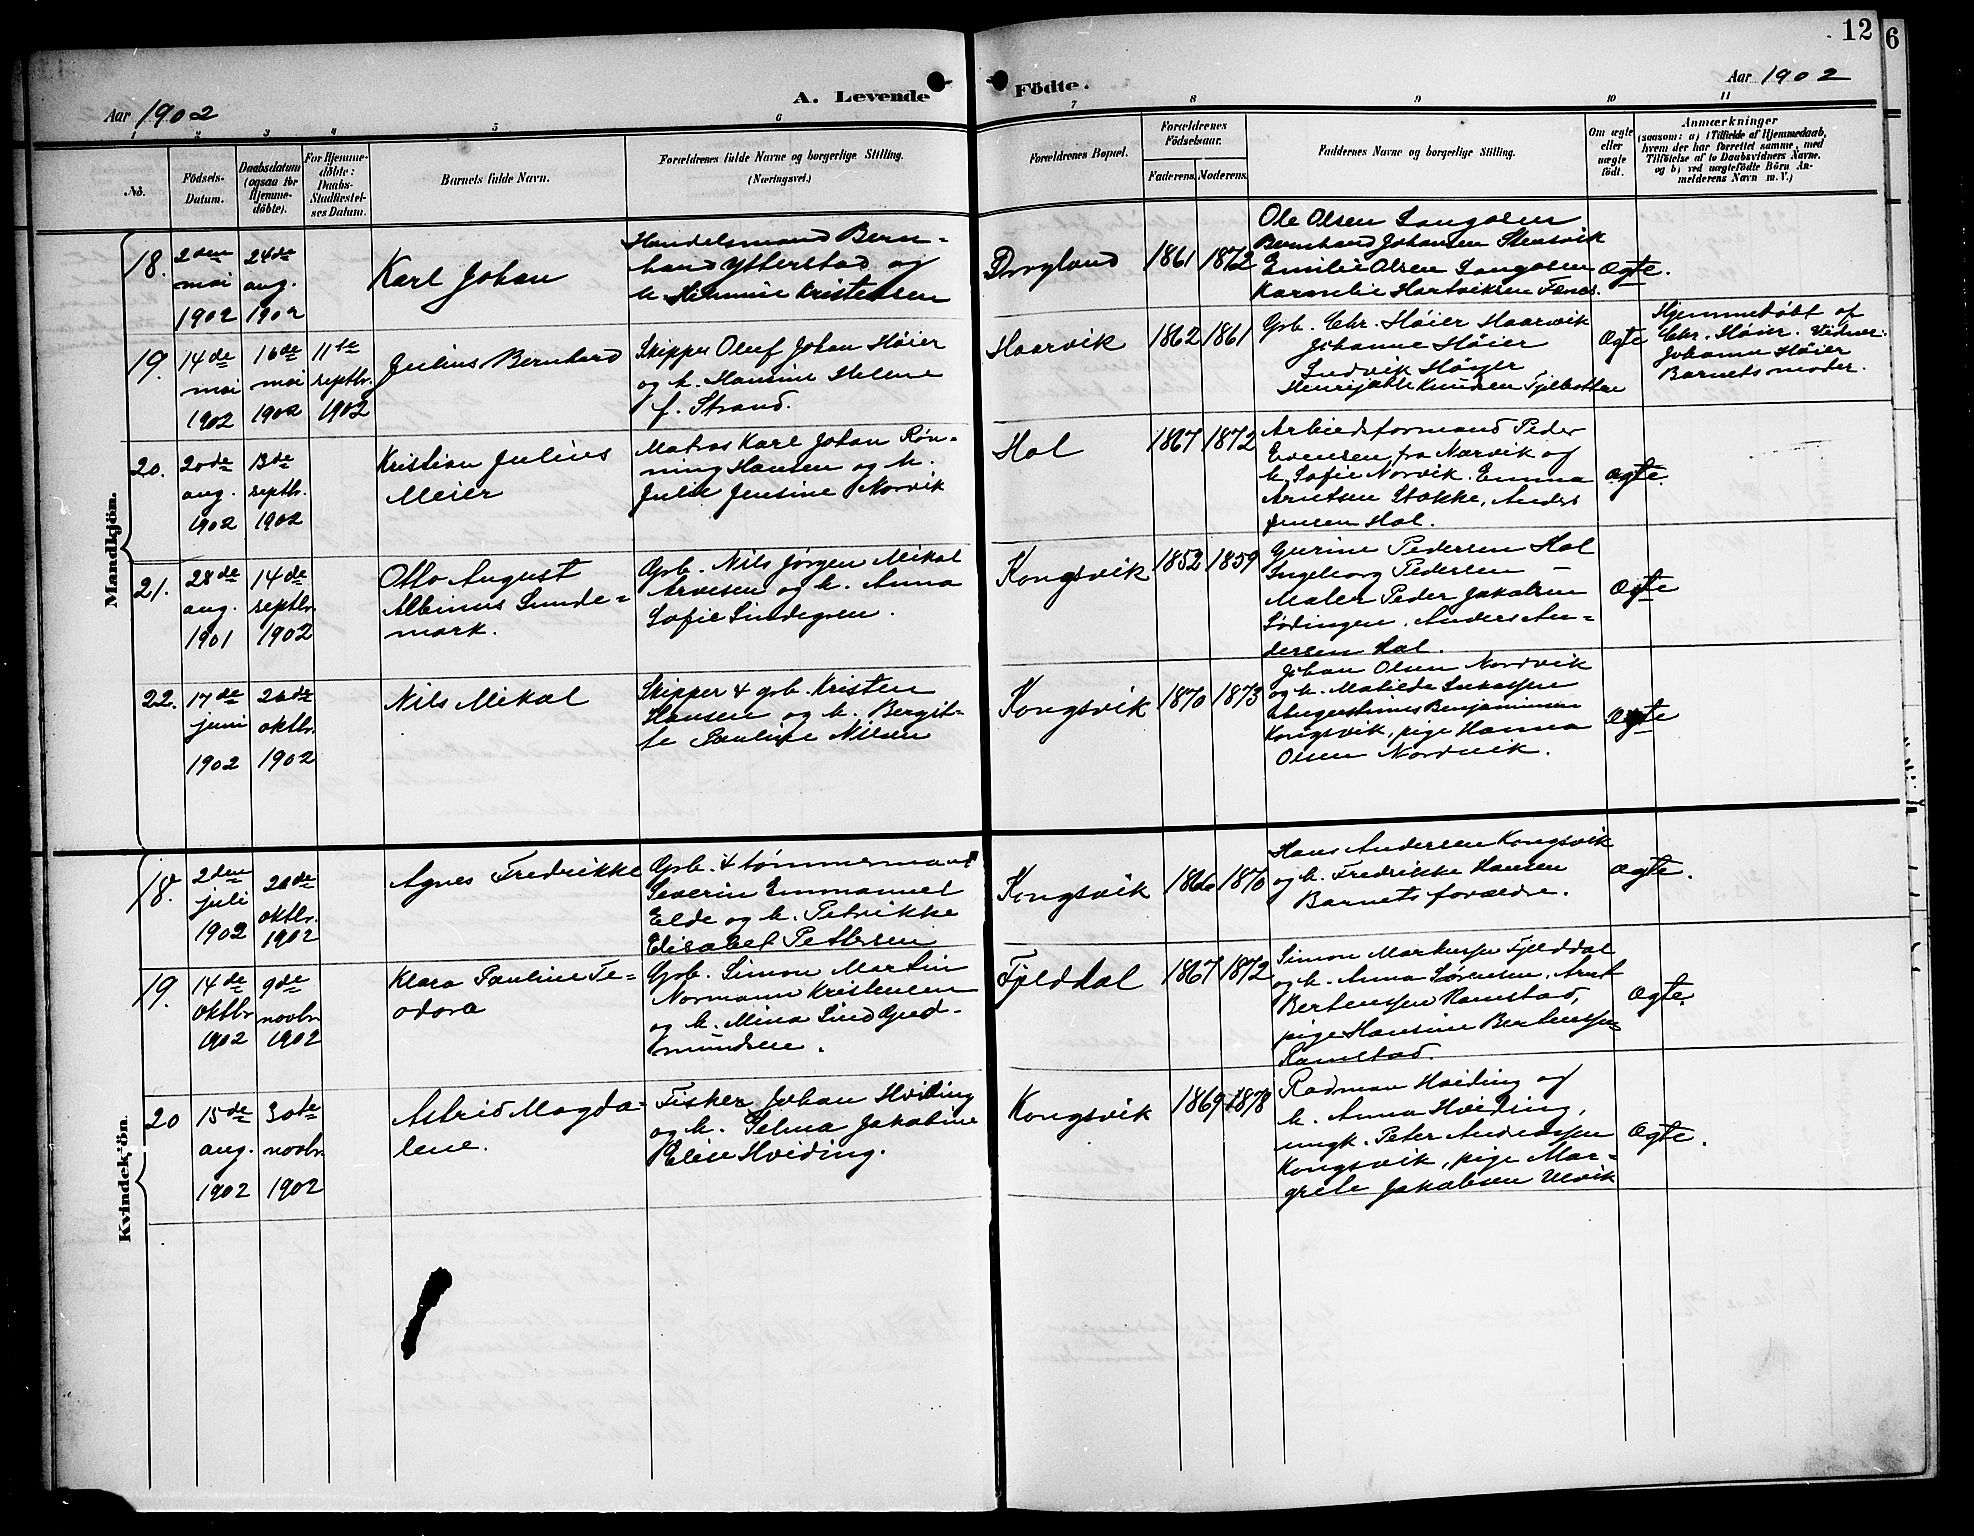 12
6
Aar 1902
A. Levende
Födte.
Aar 1902
1 2 3 4 5 6 7 8 9 10 11
No.
Födsels-
Datum.
Daabsdatum
(ogsaa for
Hjemme-
döbte).
For Hjemme-
döbte:
Daabs-
Stadfæstel-
ses Datum.
Barnets fulde Navn.
Forældrenes fulde Navne og borgerlige Stilling.
(Næringsvei.)
Forældrenes Bopæl.
Forældrenes
Födselsaar.
Faderens.
Moderens.
Faddernes Navne og borgerlige Stilling.
Om ægte
eller
uægte
födt.
Anmærkninger
(saasom: a) i Tilfælde af Hjemmedaab,
hvem der har forrettet samme, med
Tilföielse af to Daabsvidners Navne.
og b) ved uægtefödte Börn An-
melderens Navn m. V.)
Mandkjön.
18.
2den
mai
1902
24de
aug.
1902
Karl Johan
Handelsmand Bern-
hard Ytterstad og
h. Hilmine Kristensen
1861
1872
Ole Olsen Langaasen
Bernhard Johansen Stensvik
Emilie Olsen Langaasen
Kornelie Hartviksen
Ægte.
19.
14de
mai
1902
16de
mai
1902
11te
septbr.
1902
Julius Bernhard
Skipper Oluf Johan Höier
og h. Hansine Helene
f. Strand.
Haarvik
1862
1861
Grb. Chr. Höier Haarvik
Johanne Höier
Ludvik Höyer
Henrijette Knudsen Fjelbotten
Ægte
Hjemmedöbt af
Chr. Höier. Vidner:
Johanne Höier
Barnets moder.
20.
20de
aug.
1902
13de
septbr.
1902
Kristian Julius
Meier
Matros Karl Johan Røn-
ning Hansen og h.
Julie Jensine Norvik
Hol
1867
1872
Arbeidsformand Peder
Evensen fra Narvik og
h. Sofie Norvik. Emma
Arntsen Stokke, Anders
Jensen Hol.
Ægte.
21.
28de
aug.
1901
14de
septbr.
1902
Otto August
Albinus Sunde=
mark.
Grb. Nils Jørgen Mikal
Arvesen og h. Anna
Sofie Lindegren.
Kongsvik
1852
1859
Gurine Pedersen Hol
Ingeborg Pedersen —
Maler Peder Jakobsen
Lödingen. Anders An-
dersen Hol.
Ægte
22.
17de
juni
1902
26de
oktbr.
1902
Nils Mikal
Skipper & grb. Kristen
Hansen og h. Bergit-
te Pauline Nilsen
Kongsvik
1870
1873
Johan Olsen Nordvik
og h. Matilde Lukassen
Augustinus Benjaminsen
Kongsvik, pige Hanna
Olsen Nordvik.
Ægte
Kvindekjön.
18.
2den
juli
1902
26de
oktbr.
1902
Agnes Fredrikke
Grb. & tömmermand
Severin Emmanuel
Elde og h. Petrikke
Elisabet Pettersen
Kongsvik
1870
Hans Andersen Kongsvik
og h. Fredrikke Hansen
Barnets forældre.
Ægte.
19.
14de
oktbr
1902
9de
novbr.
1902
Klara Pauline Te-
odora
Grb. Simon Martin
Normann Kristensen
og h. Mina Lind Gud-
mundsen.
Fjelddal
1867
1872
Simon Markussen Fjelddal
og h. Anna Sørensen. Arnt
Bertenssen Ramstad,
pige Hansine Bertenssen
Ramstad.
Ægte.
20
15de
aug.
1902
30te
novbr.
1902
Astrid Magda-
lene.
Fisker Johan Hveding
og h. Selma Jakobine
Elise Hveding.
Kongsvik
1869
1878
Rodman Hveding og
h. Anna Hveding,
ungk. Peter Andreassen
Kongsvik, pige Mar-
grete Jakobsen Ulvik
Ægte.